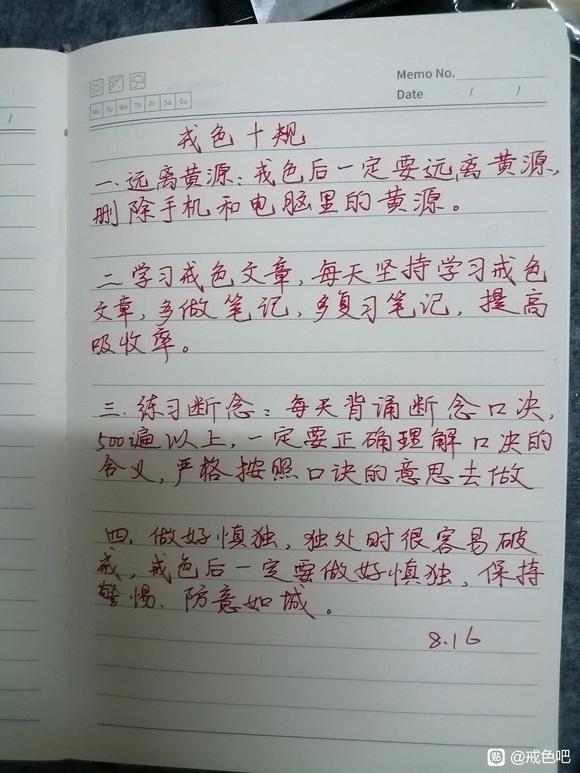 Memo No.
Mo Tu We Th Fr Sa Su
Date / /
/
戒色十规
一.远离黄源：戒色后一定要远离黄源，
删除手机和电脑里的黄源。
二.学习戒色文章，每天坚持学习戒色
文章，多做笔记，多复习笔记，提高
吸收率。
三.练习断念：每天背诵断念口决，
500遍以上，一定要正确理解口决的
含义，严格按照口诀的意思去做
四.做好慎独，独处时很容易破
戒，戒色后一定要做好慎独，保持
警惕、防意如城。
8.16
贴 @戒色吧